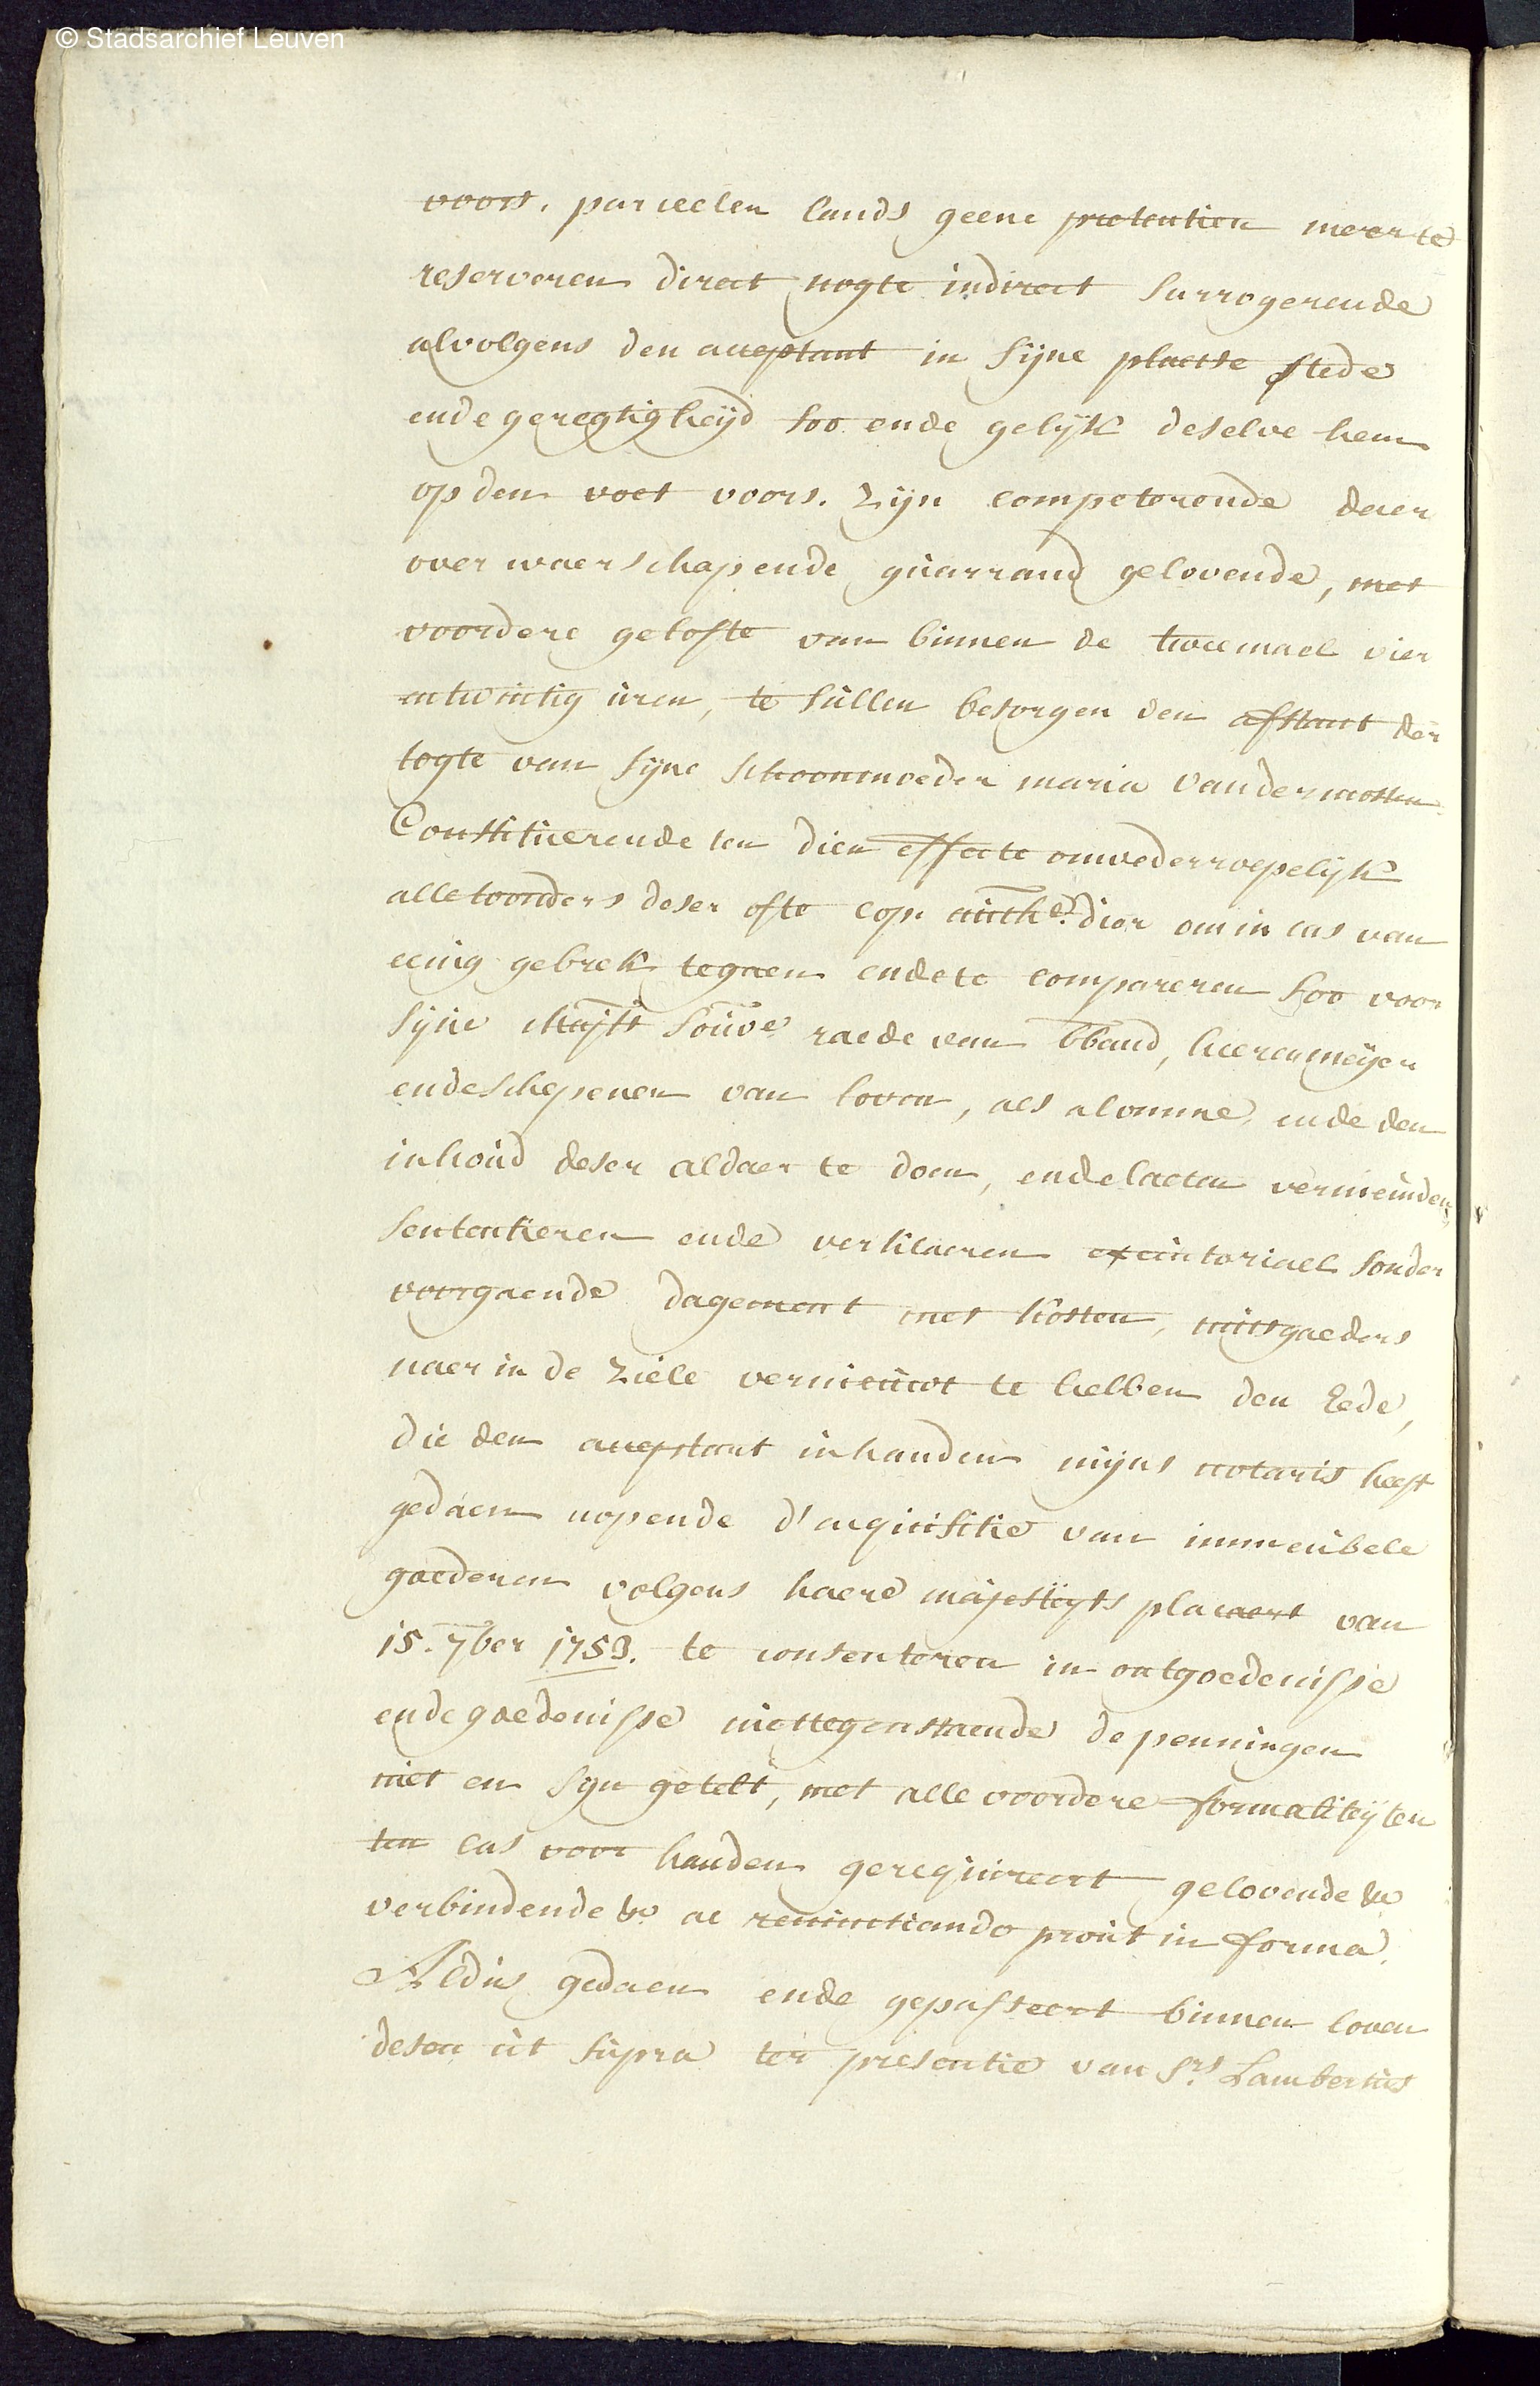 © Stadsarchief Leuven
voors. parceelen lands geene pretentien meer te
reserveren direct nogte indirect surrogerende
alvolgens den acceptant in sijne plaetse stede
ende geregtigheijd soo ende gelijk deselve hem
op den voet voors. zijn competerende daer
over waerschapende guarrand gelovende, met
voordere gelofte van binnen de tweemael vier
entwintig uren, te sullen besorgen den afstant der
togte van sijne schoonmoeder maria Vandermosten
Constituerende ten dien effecte onwederroepelijk
alle toonders deser ofte cop. auth.e dier om in cas van
eenig gebrek te gaen ende te compareren soo voor
sijne Majts souve raede van bband, heeren meijer
ende schepenen van loven, als alomme, ende den
inhoud deser aldaer te doen, ende laeten vernieuwden,
sententieren ende verklaeren executoriael sonder
voorgaende dagement met kosten, mitsgaeders
naer in de ziele vernieuwt te hebben den Eede,
die den acceptant in handen mijns notaris heeft
gedaen nopende d'acquisitie van immeubele
goederen volgens haere majesteijts placcaert van
15. 7ber 1753. te consenteren in ontgoedenisse
ende goedenisse niettegenstaende de penningen
niet en syn getelt, met alle voordere formaliteijten
ten cas voor handen gerequireert gelovende &c
verbindende &c ac renuntiando prout in forma.
Aldus gedaen ende gepasseert binnen loven
desen ut supra ter presentie van Srs Lambertus